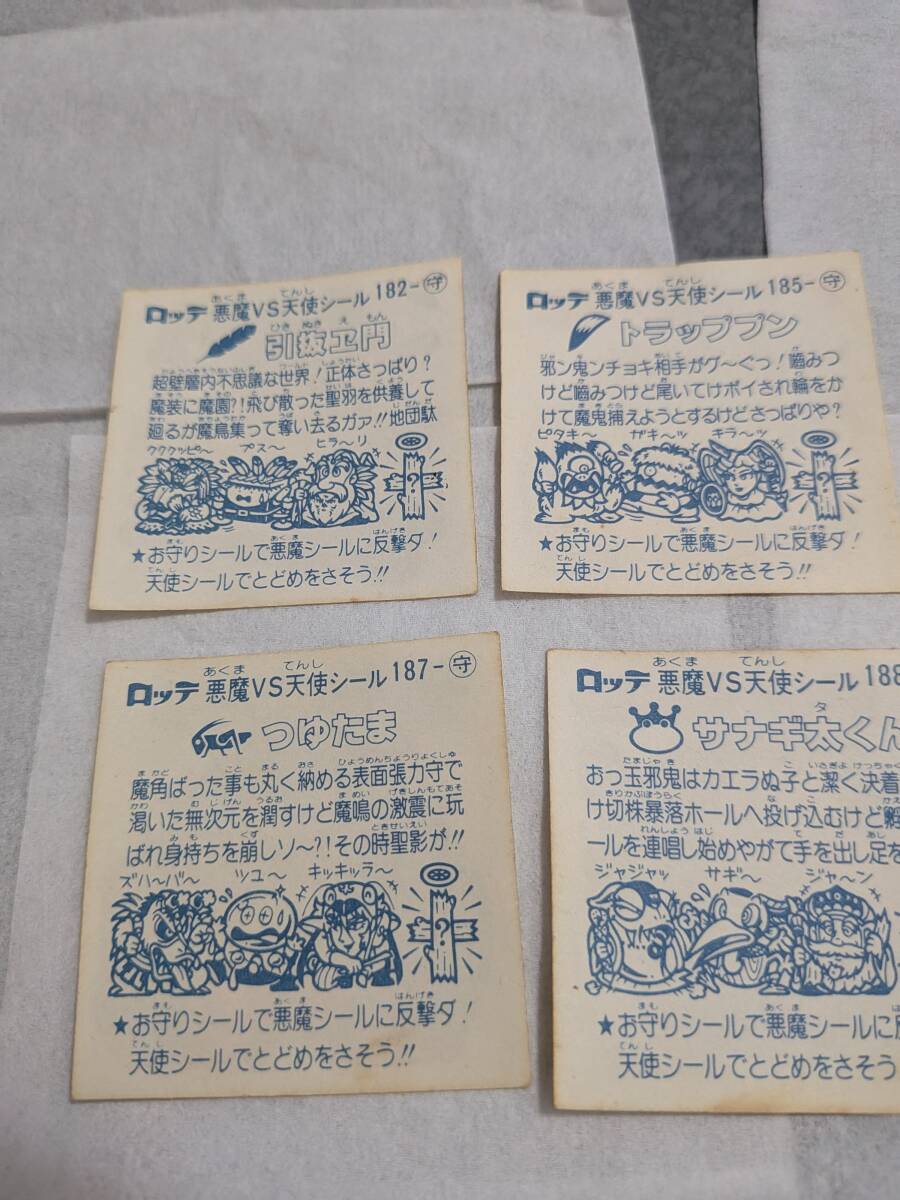 ロッテ 悪魔VS天使シール 182-守
あくま てんし
引抜ヱ門
ひき ぬき え もん
超壁層内不思議な世界!正体さっぱり?
魔装に魔園?!飛び散った聖羽を供養して
廻るが魔鳥集って奪い去るガァ!!地団駄
ククックピ〜 プス〜 ヒラ〜リ
?
★お守りシールで悪魔シールに反撃ダ!
天使シールでとどめをさそう!!
ロッテ 悪魔VS天使シール 185-守
あくま てんし
トラッププン
邪ン鬼ンチョキ相手がグ〜ぐっ!嚙みつ
けど嚙みつけど尾いてけポイされ輪をか
けて魔鬼捕えようとするけどさっぱりや?
ピタキ〜 ザキ〜ッ キラ〜ッ
?
★お守りシールで悪魔シールに反撃ダ!
天使シールでとどめをさそう!!
ロッテ 悪魔VS天使シール 187-守
あくま てんし
つゆたま
魔角ばった事も丸く納める表面張力守で
渇いた無次元を潤すけど魔鳴の激震に玩
ばれ身持ちを崩しソ〜?!その時聖影が!!
ズハ〜バ〜 ツユ〜 キッキッラ〜
?
★お守りシールで悪魔シールに反撃ダ!
天使シールでとどめをさそう!!
ロッテ 悪魔VS天使シール 188
あくま てんし
サナギ太くん
タ
おっ玉邪鬼はカエラぬ子と潔く決着
け切株暴落ホールへ投げ込むけど
ールを連唱し始めやがて手を出し足を
ジャジャッ サギ〜 ジャ〜ン
★お守りシールで悪魔シールに
天使シールでとどめをさそう